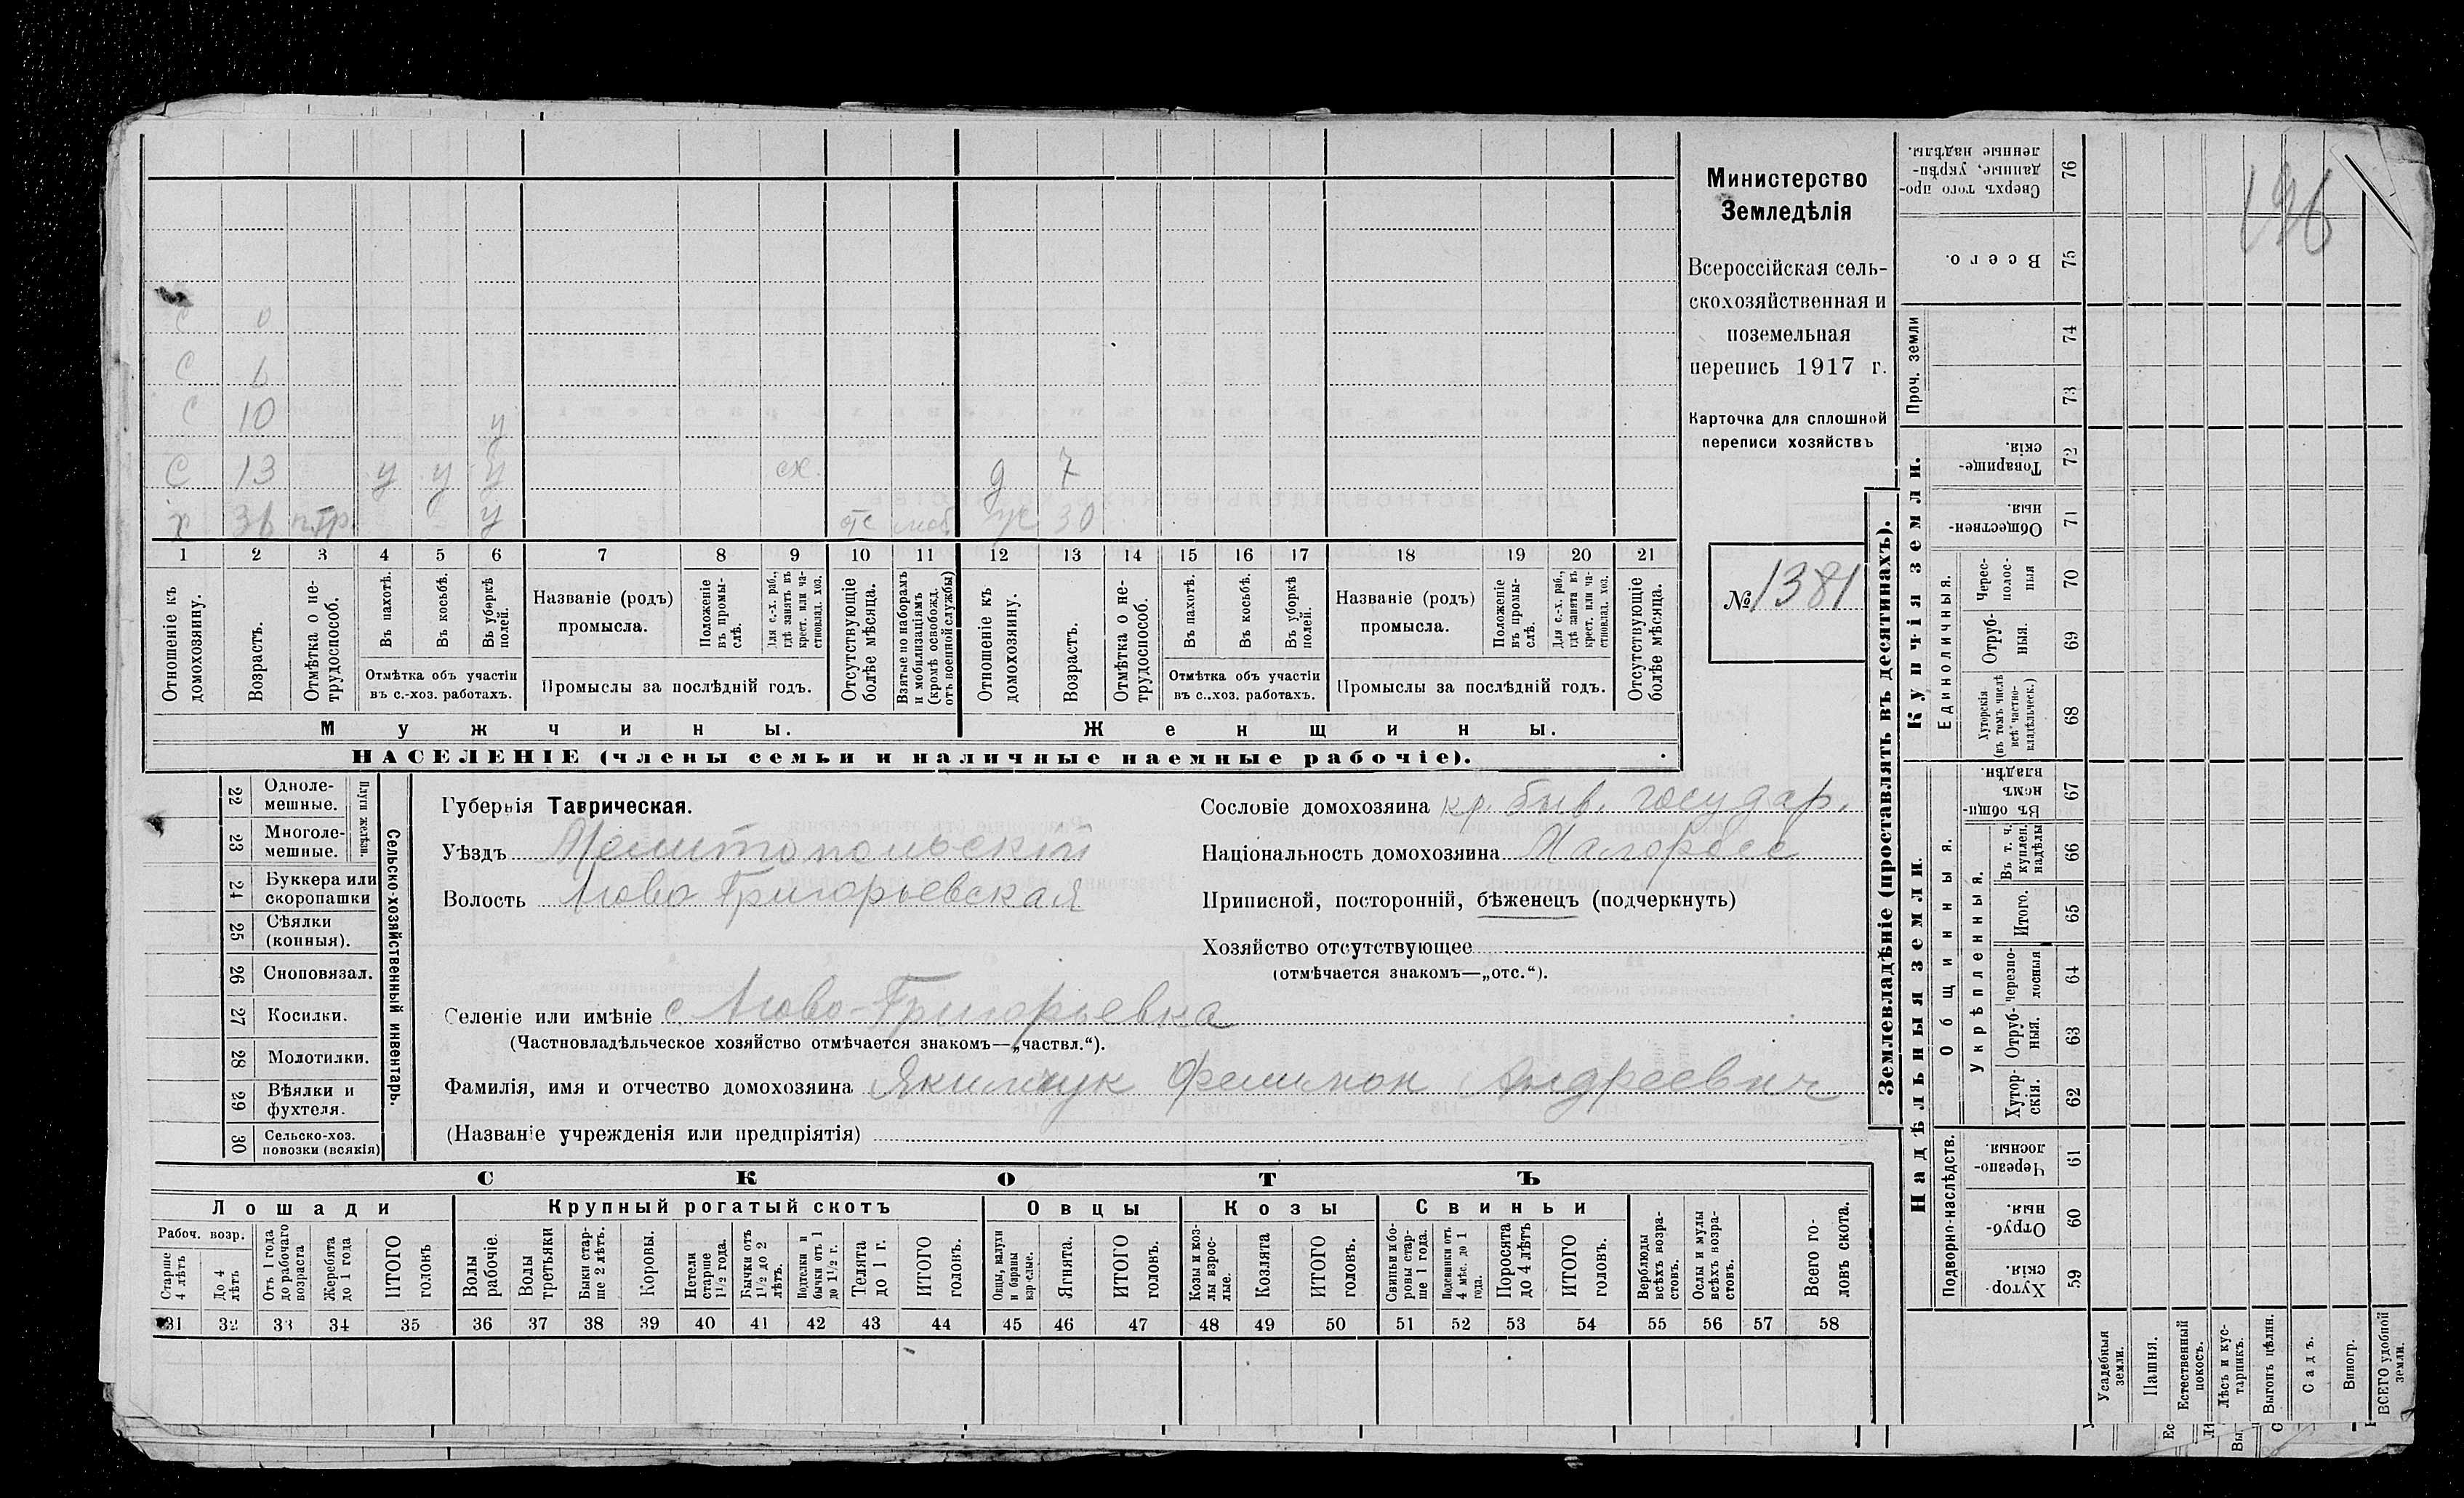 196
Министерство
Земледѣлія
Всероссійская сель-
скохозяйственная и
поземельная
перепись 1917 г.
Карточка для сплошной
переписи хозяйствъ
№ 1381
С 0
С 6
С 10 у
С 13 у у у сх. д 7
х 36 у отс моб. ж 30
1 2 3 4 5 6 7 8 9 10 11 12 13 14 15 16 17 18 19 20 21
Отношеніе къ домохозяину.
Возрастъ.
Отмѣтка о не-трудоспособ.
Въ пахотѣ.
Въ косьбѣ.
Въ уборкѣ полей.
Отмѣтка объ участіи
въ с.-хоз. работахъ.
Названіе (родъ)
промысла.
Положеніе въ промы-слѣ.
Для с.-х. раб., гдѣ занятъ въ крест. или ча-стновлад. хоз.
Промыслы за послѣдній годъ.
Отсутствующіе болѣе мѣсяца.
Взятые по наборамъ и мобилизаціямъ (кромѣ освобожд. отъ военной службы)
Отношеніе къ домохозяину.
Возрастъ.
Отмѣтка о не-трудоспособ.
Въ пахотѣ.
Въ косьбѣ.
Въ уборкѣ полей.
Отмѣтка объ участіи
въ с.-хоз. работахъ.
Названіе (родъ)
промысла.
Положеніе въ промы-слѣ.
Для с.-х. раб., гдѣ занята въ крест. или ча-стновлад. хоз.
Промыслы за послѣдній годъ.
Отсутствующіе болѣе мѣсяца.
Мужчины. Женщины.
НАСЕЛЕНІЕ (члены семьи и наличные наемные рабочіе).
Сельско-хозяйственный инвентарь.
Плуги желѣзн.
22 Одноле-мешные.
23 Многоле-мешные.
24 Буккера или скоропашки
25 Сѣялки (конныя).
26 Сноповязал.
27 Косилки.
28 Молотилки.
29 Вѣялки и фухтеля.
30 Сельско-хоз. повозки (всякія)
Губернія Таврическая.
Уѣздъ Мелитопольскій
Волость Ново Григорьевская
Сословіе домохозяина кр. быв. государ.
Національность домохозяина Малоросс
Приписной, посторонній, бѣженецъ (подчеркнуть)
Хозяйство отсутствующее
(отмѣчается знакомъ—„отс.“).
Селеніе или имѣніе с. Ново-Григорьевка
(Частновладѣльческое хозяйство отмѣчается знакомъ—„частвл.“).
Фамилія, имя и отчество домохозяина Якимчук Филимон Андреевич
(Названіе учрежденія или предпріятія)
СКОТЪ
Лошади Крупный рогатый скотъ Овцы Козы Свиньи
Рабоч. возр.
Старше 4 лѣтъ
До 4 лѣтъ
Отъ 1 года до рабочаго возраста
Жеребята до 1 года
ИТОГО головъ
Волы рабочіе.
Волы третьяки
Быки стар-ше 2 лѣтъ.
Коровы.
Нетели старше 1 1/2 года.
Бычки отъ 1 1/2 до 2 лѣтъ.
Подтелки и бычки отъ 1 до 1 1/2 г.
Телята до 1 г.
ИТОГО головъ.
Овцы, валухи и бараны взрослые.
Ягнята.
ИТОГО головъ.
Козы и коз-лы взрос-лые.
Козлята
ИТОГО головъ.
Свиньи и бо-ровы стар-ше 1 года.
Подсвинки отъ 4 мѣс. до 1 года.
Поросята до 4 лѣтъ
ИТОГО головъ.
Верблюды всѣхъ возра-стовъ.
Ослы и мулы всѣхъ возра-стовъ.
Всего го-ловъ скота.
31 32 33 34 35 36 37 38 39 40 41 42 43 44 45 46 47 48 49 50 51 52 53 54 55 56 57 58
Землевладѣніе (проставлять въ десятинахъ).
Надѣльныя земли.
Купчія земли.
Проч. земли
Подворно-наслѣдств.
Общинныя.
Укрѣпленныя.
Единоличныя.
Хутор-скія. 59
Отруб-ныя. 60
Черезпо-лосныя. 61
Хутор-скія. 62
Отруб-ныя. 63
Черезпо-лосныя 64
Итого. 65
Въ т. ч. куплен. надѣлы 66
Въ общи-номъ владѣн. 67
Хуторскія (въ томъ числѣ всѣ частно-владѣльческ.) 68
Отруб-ныя. 69
Черес-полос-ныя 70
Обществен-ныя. 71
Товарище-скія. 72
73
74
Всего. 75
Сверхъ того про-данные, укрѣп-ленные надѣлы. 76
Усадебныя земли.
Пашня.
Естественный покосъ.
Лѣсъ и кус-тарникъ.
Выгонъ цѣлин.
Садъ.
Виногр.
ВСЕГО удобной земли.